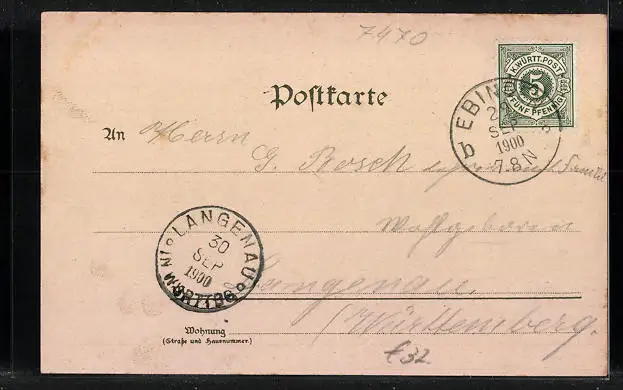 7470
K.WÜRTT.POST
5
FÜNF PFENNIG
Postkarte
EBIN
SEP
1900
7-8 N
b
An Herrn
G. Bosch
LANGENAU
30
SEP
1900
IN WÜRTTBG
Wohlgeboren
Langenau
(Württemberg.
Wohnung
(Straße und Hausnummer)
€32